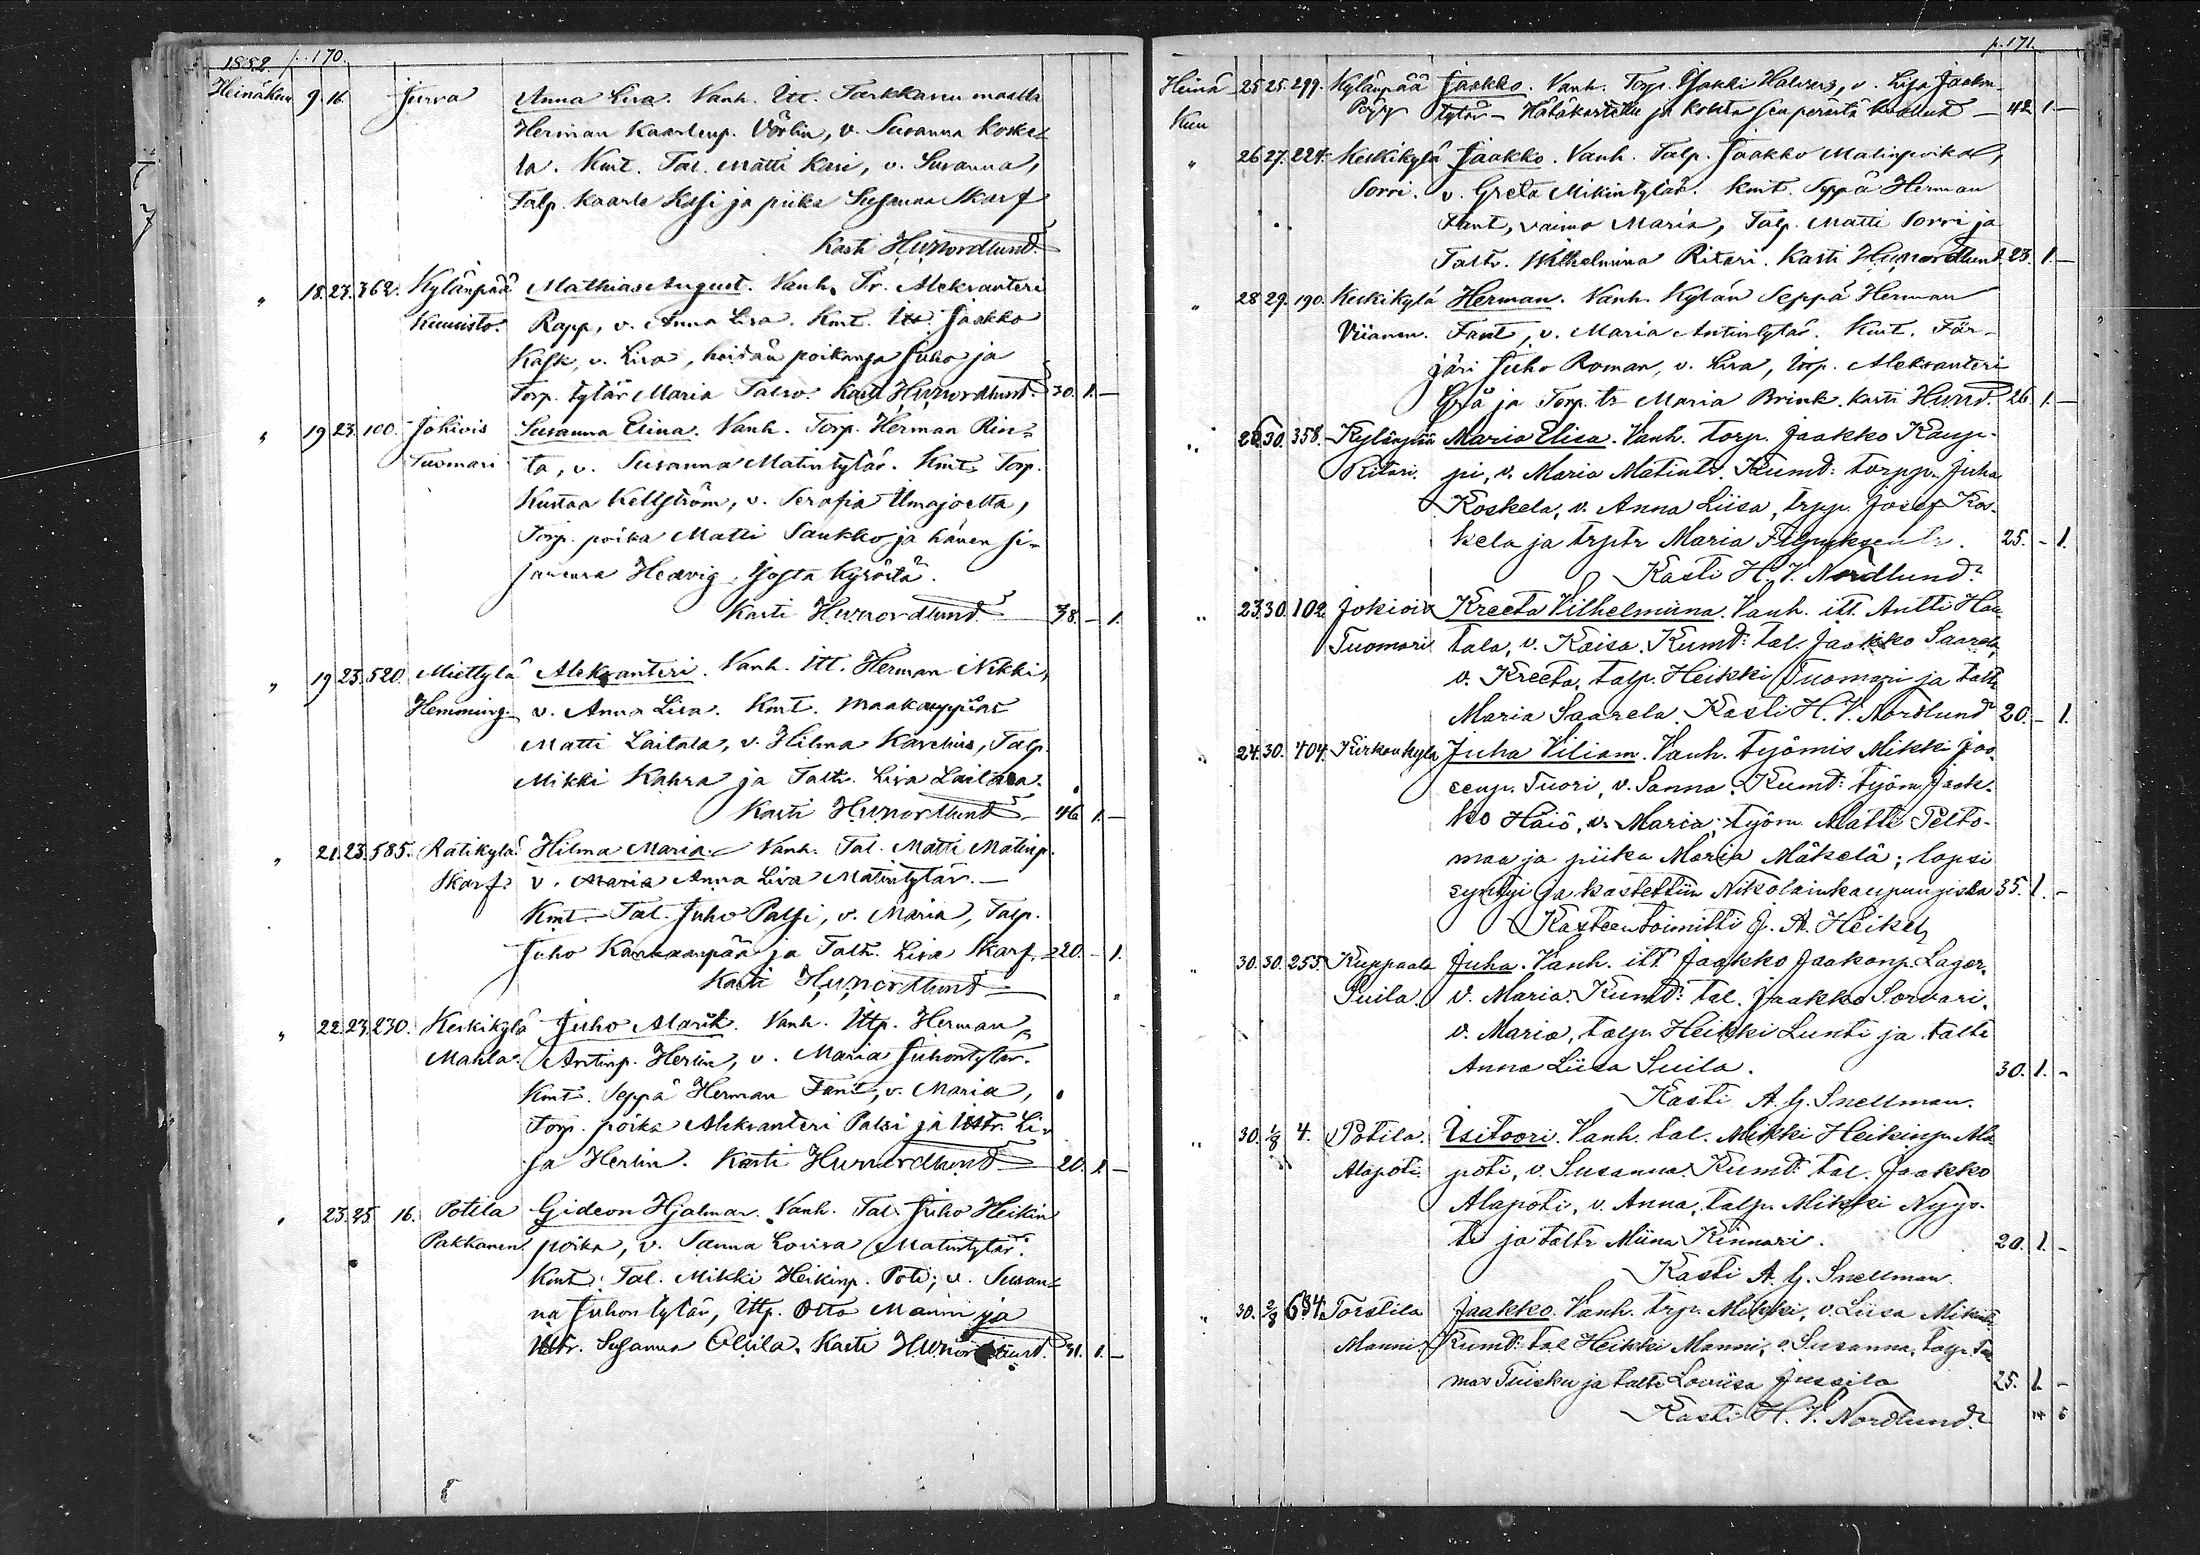 1882. p. 170.
Heinäkuu 9 16 Jurva Anna Lisa. Vanh. Itt. Tarkkasen maalla
Herman Kaarlenp. Vörlin, v. Susanna Koske-
la. Kmt. Tal. Matti Kasi, v. Susanna,
Talp. Kaarle Kasi ja piika Susanna Skarf
Kasti HWNordlund.
" 18. 23. 362. Kylänpää Mathias August. Vanh. Tr. Aleksanteri
Kuusisto. Rapp, v. Anna Lisa. Kmt. Itt. Jaakko
Kask, v. Lisa, heidän poikansa Juho ja
Torp. tytär Maria Talso. Kasti HWNordlund. 30. 1. —
" 19 23. 100. Jokiois Susanna Elina. Vanh. Torp. Herman Rin-
Tuomari ta, v. Susanna Matintytär. Kmt. Torp.
Kustaa Kellström, v. Serafia Ilmajoelta,
Torp. poika Matti Saukko ja hänen si-
sarensa Hedvig, Isosta Kyröstä.
Kasti HWNordlund — 38. — 1.
" 19 23. 520. Miettylä Aleksanteri. Vanh. Itt. Herman Nikki,
Hemming. v. Anna Lisa. Kmt. Maakauppias
Matti Laitala, v. Hilma Karchus, Talp.
Mikki Kahra ja Taltr. Lisa Laitala.
Kasti HWNordlund — 46 1. —
" 21. 23. 585. Ratikylä Hilma Maria. Vanh. Tal. Matti Matinp.
Skarf. v. Maria Anna Lisa Matintytär. —
Kmt. — Tal. Juho Palsi, v. Maria, Talp.
Juho Kankaanpää ja Taltr. Lisa Skarf. 20. — 1.
Kasti HWNordlund —
" 22. 23. 230. Keskikylä Juho Alarik. Vanh. Ittp. Herman
Mahla. Antinp. Herlin, v. Maria Juhontytär.
Kmt. Seppä Herman Fant, v. Maria,
Torp. poika Aleksanteri Palsi ja Ittr. Li-
sa Herlin. Kasti HWNordlund — 20. 1. —
" 23. 25 16. Potila Gideon Hjalmar. Vanh. Tal. Juho Heikin
Pakkanen. poika, v. Sanna Lovisa Matintytär.
Kmt. Tal. Mikki Heikinp. Poti, v. Susan-
na Juhontytär, Ittp. Otto Manni ja
Ittr. Susanna Ollila. Kasti HWNordlund. 31. 1. —
p. 171.
Heinä 25 25. 299. Kylänpää Jaakko. Vanh. Torp. Isakki v. Lisa Jaakon
Kuu tytär — Hätäkastettu ja kohta sen perästä kuollut — 42 1. —
" 26 27. 224. Keskikylä Jaakko. Vanh. Talp. Jaakko Matinpoika,
Sorri. v. Greta Mikintytär. Kmt. Seppä Herman
Fant, vaimo Maria, Talp. Matti Sorri ja
Taltr. Wilhelmina Ritari. Kasti HWNordlund. 23. 1. —
" 28 29. 190. Keskikylä Herman. Vanh. Kylän Seppä Herman
Viianen. Fant, v. Maria Antintytär. Kmt. Fär-
järi Juho Roman, v. Lisa, Torp. Aleksanteri
Grå ja Torp. tr Maria Brink. Kasti HWNd. 26. 1. —
" 22 30. 358. Kylänpää Maria Elisa. Vanh. torp. Jaakko Kaup-
Ritari. pi, v. Maria Matintr. Kumd: torpp. Juha
Koskela, v. Anna Liisa, trpp. Josef Kos-
kela ja trptr Maria Filpuksentr. 25. — 1.
Kasti H. V. Nordlund.
" 23. 30. 102 Jokiois Kreeta Vilhelmiina. Vanh. itt. Antti Hau
Tuomari tala, v. Kaisa. Kumd: tal. Jaakko Saarela,
v. Kreeta, talp. Heikki Tuomari ja taltr
Maria Saarela. Kasti H. V. Nordlund 20. — 1.
" 24. 30. 404. Kirkonkylä Juha Viliam. Vanh. työmis Mikki Joo-
senp. Tuori, v. Sanna. Kumd: työm Jaak-
ko Häiö, v. Maria; työm Matti Pelto-
maa ja piika Maria Mäkelä; lapsi
syntyi ja kastettiin Nikolainkaupungissa 35. 1. —
Kasteen toimitti J. A. Heikel
" 30. 30. 255. Kuppaala Juha. Vanh. itt Jaakko Jaakonp. Lager,
Suila. v. Maria. Kumd: tal. Jaakko Sorvari,
v. Maria, talp. Heikki Lunti ja taltr
Anna Liisa Suila. 30. 1. —
Kasti A. G. Snellman.
" 30. 1/8 4. Potila. Isitoori. Vanh. tal. Mikki Heikinp. Ala
Alapoti. poti, v. Susanna. Kumd: tal. Jaakko
Alapoti, v. Anna, talp. Mikki Nyys-
ti ja taltr Miina Kinnari. 20. 1. —
Kasti A. G. Snellman.
" 30. 2/8 634. Torstila Jaakko. Vanh. trp. Mikki, v. Liisa Mikintr
Manni. Kumd: tal Heikki Manni, v. Susanna, talp. Tuo
mas Tuisku ja taltr Loviisa Jussila 25. 1. —
Kasti H. V. Nordlund. 14 6